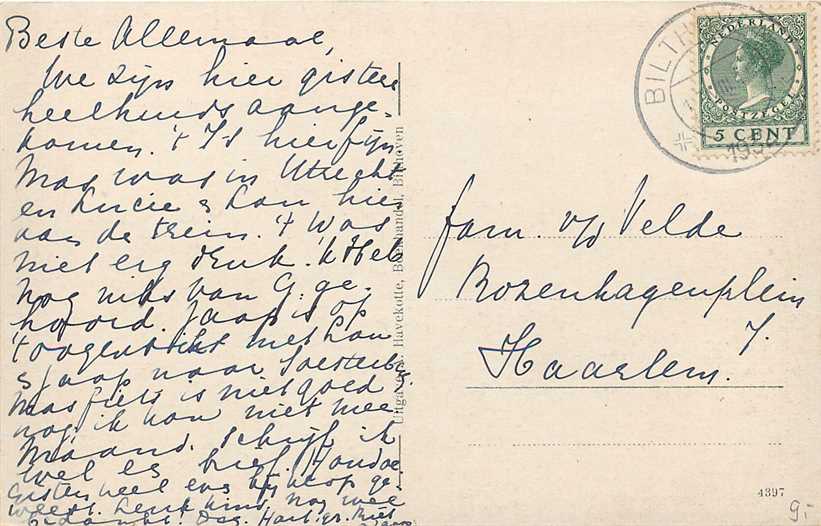 Beste Allemaal,
We zijn hier gisteren
heelhuids aange-
komen. 't Is hier fijn.
Mas was in Utrecht
en Lucie & Han hier
aan de trein. 't Was
niet erg druk. 'k Heb
nog niks van G. ge-
hoord. Jaap is op
't oogenblik met Han
& Jaap naar Soesterb.
Mas fiets is niet goed
nog. ik kon niet mee
Maand. schrijf ik
wel es brief. Houdoe
Gisteren heel erg bij
weest. Leuk hind. nog wel
bedankt. Dag. Hart. gr.
Uitgave Fa. Havekotte, Boekhandel, Bilthoven
BILTHOVEN
NEDERLAND
POSTZEGEL
5 CENT
Fam. v/d Velde
Rozenhagenplein
7.
Haarlem.
4397
9,-